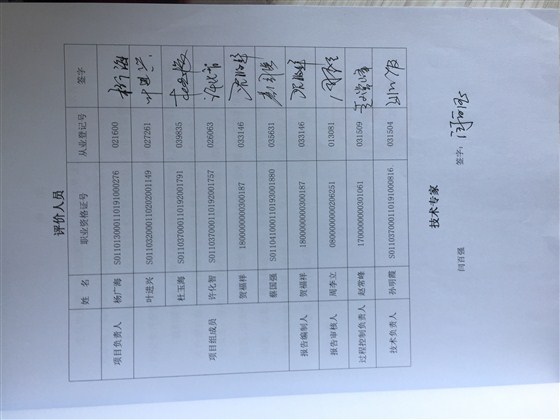 评价人员
姓 名 职业资格证号 从业登记号 签字
项目负责人 杨广海 S011013000110191000276 021600
项目组成员 叶进兴 S011032000110202001149 027261
杜玉海 S011037000110192001791 039835
许化智 S011037000110192001757 026063
贺福样 1800000000300187 033146
蔡国强 S011041000110193001880 035631
报告编制人 贺福样 1800000000300187 033146
报告审核人 周李立 0800000000206251 013081
过程控制负责人 赵常峰 1700000000301061 031509
技术负责人 孙明霞 S011037000110191000816 031504
技术专家
闫百强 签字：